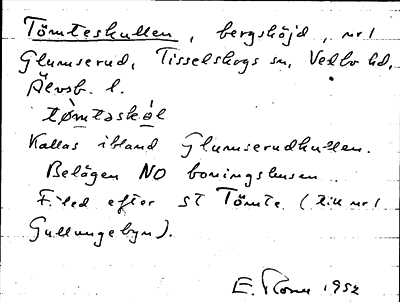 Tömteskullen, bergshöjd, nr 1
Glumserud, Tisselskogs sn, Vedbo hd,
Älvsb. l.
tømtəskàl
Kallas ibland Glumserudkullen.
Belägen NO boningshusen.
F.led efter st Tömte (till nr 1
Gullungebyn).
E. 1952